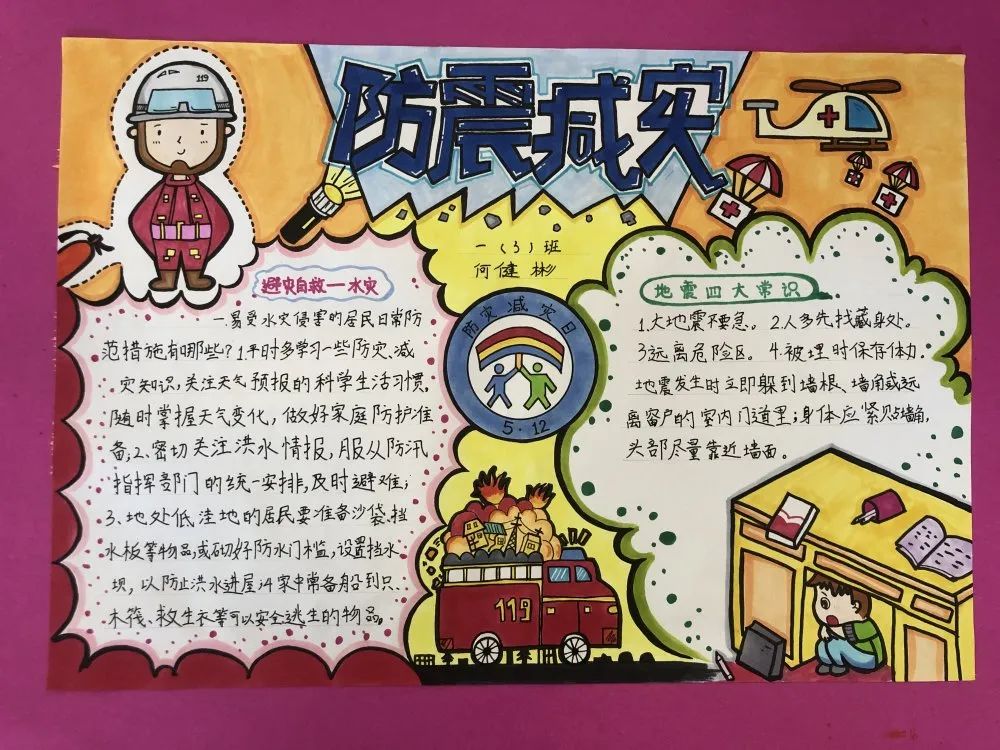 119
防震减灾
一(3)班
何健彬
避灾自救一水灾
一.易受水灾侵害的居民日常防
范措施有哪些?1.平时多学习一些防灾、减
灾知识,关注天气预报的科学生活习惯,
随时掌握天气变化,做好家庭防护准
备;2、密切关注洪水情报,服从防汛
指挥部门的统一安排,及时避难;
3、地处低洼地的居民要准备沙袋、挡
水板等物品,或砌好防水门槛,设置挡水
坝,以防止洪水进屋;4家中常备船到只、
木筏、救生衣等可以安全逃生的物品。
防灾减灾日
5·12
119
地震四大常识
1.大地震不要急。2.人多先找藏身处。
3远离危险区。4.被埋时保存体力.
地震发生时立即躲到墙根、墙角或远
离窗户的室内门道里;身体应紧贴墙角,
头部尽量靠近墙面。